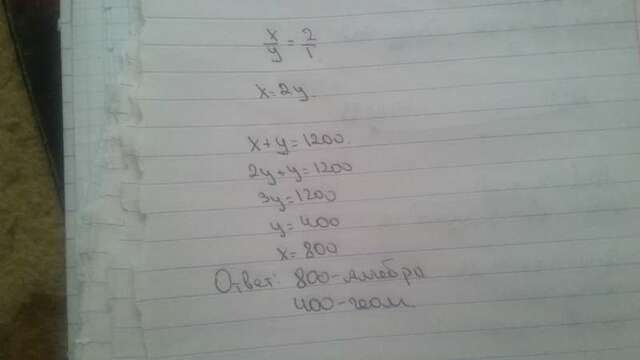 x/y = 2/1
x=2y.
x+y=1200.
2y+y=1200
3y=1200
y=400
x=800
Ответ: 800-Алгебра
400-геом.